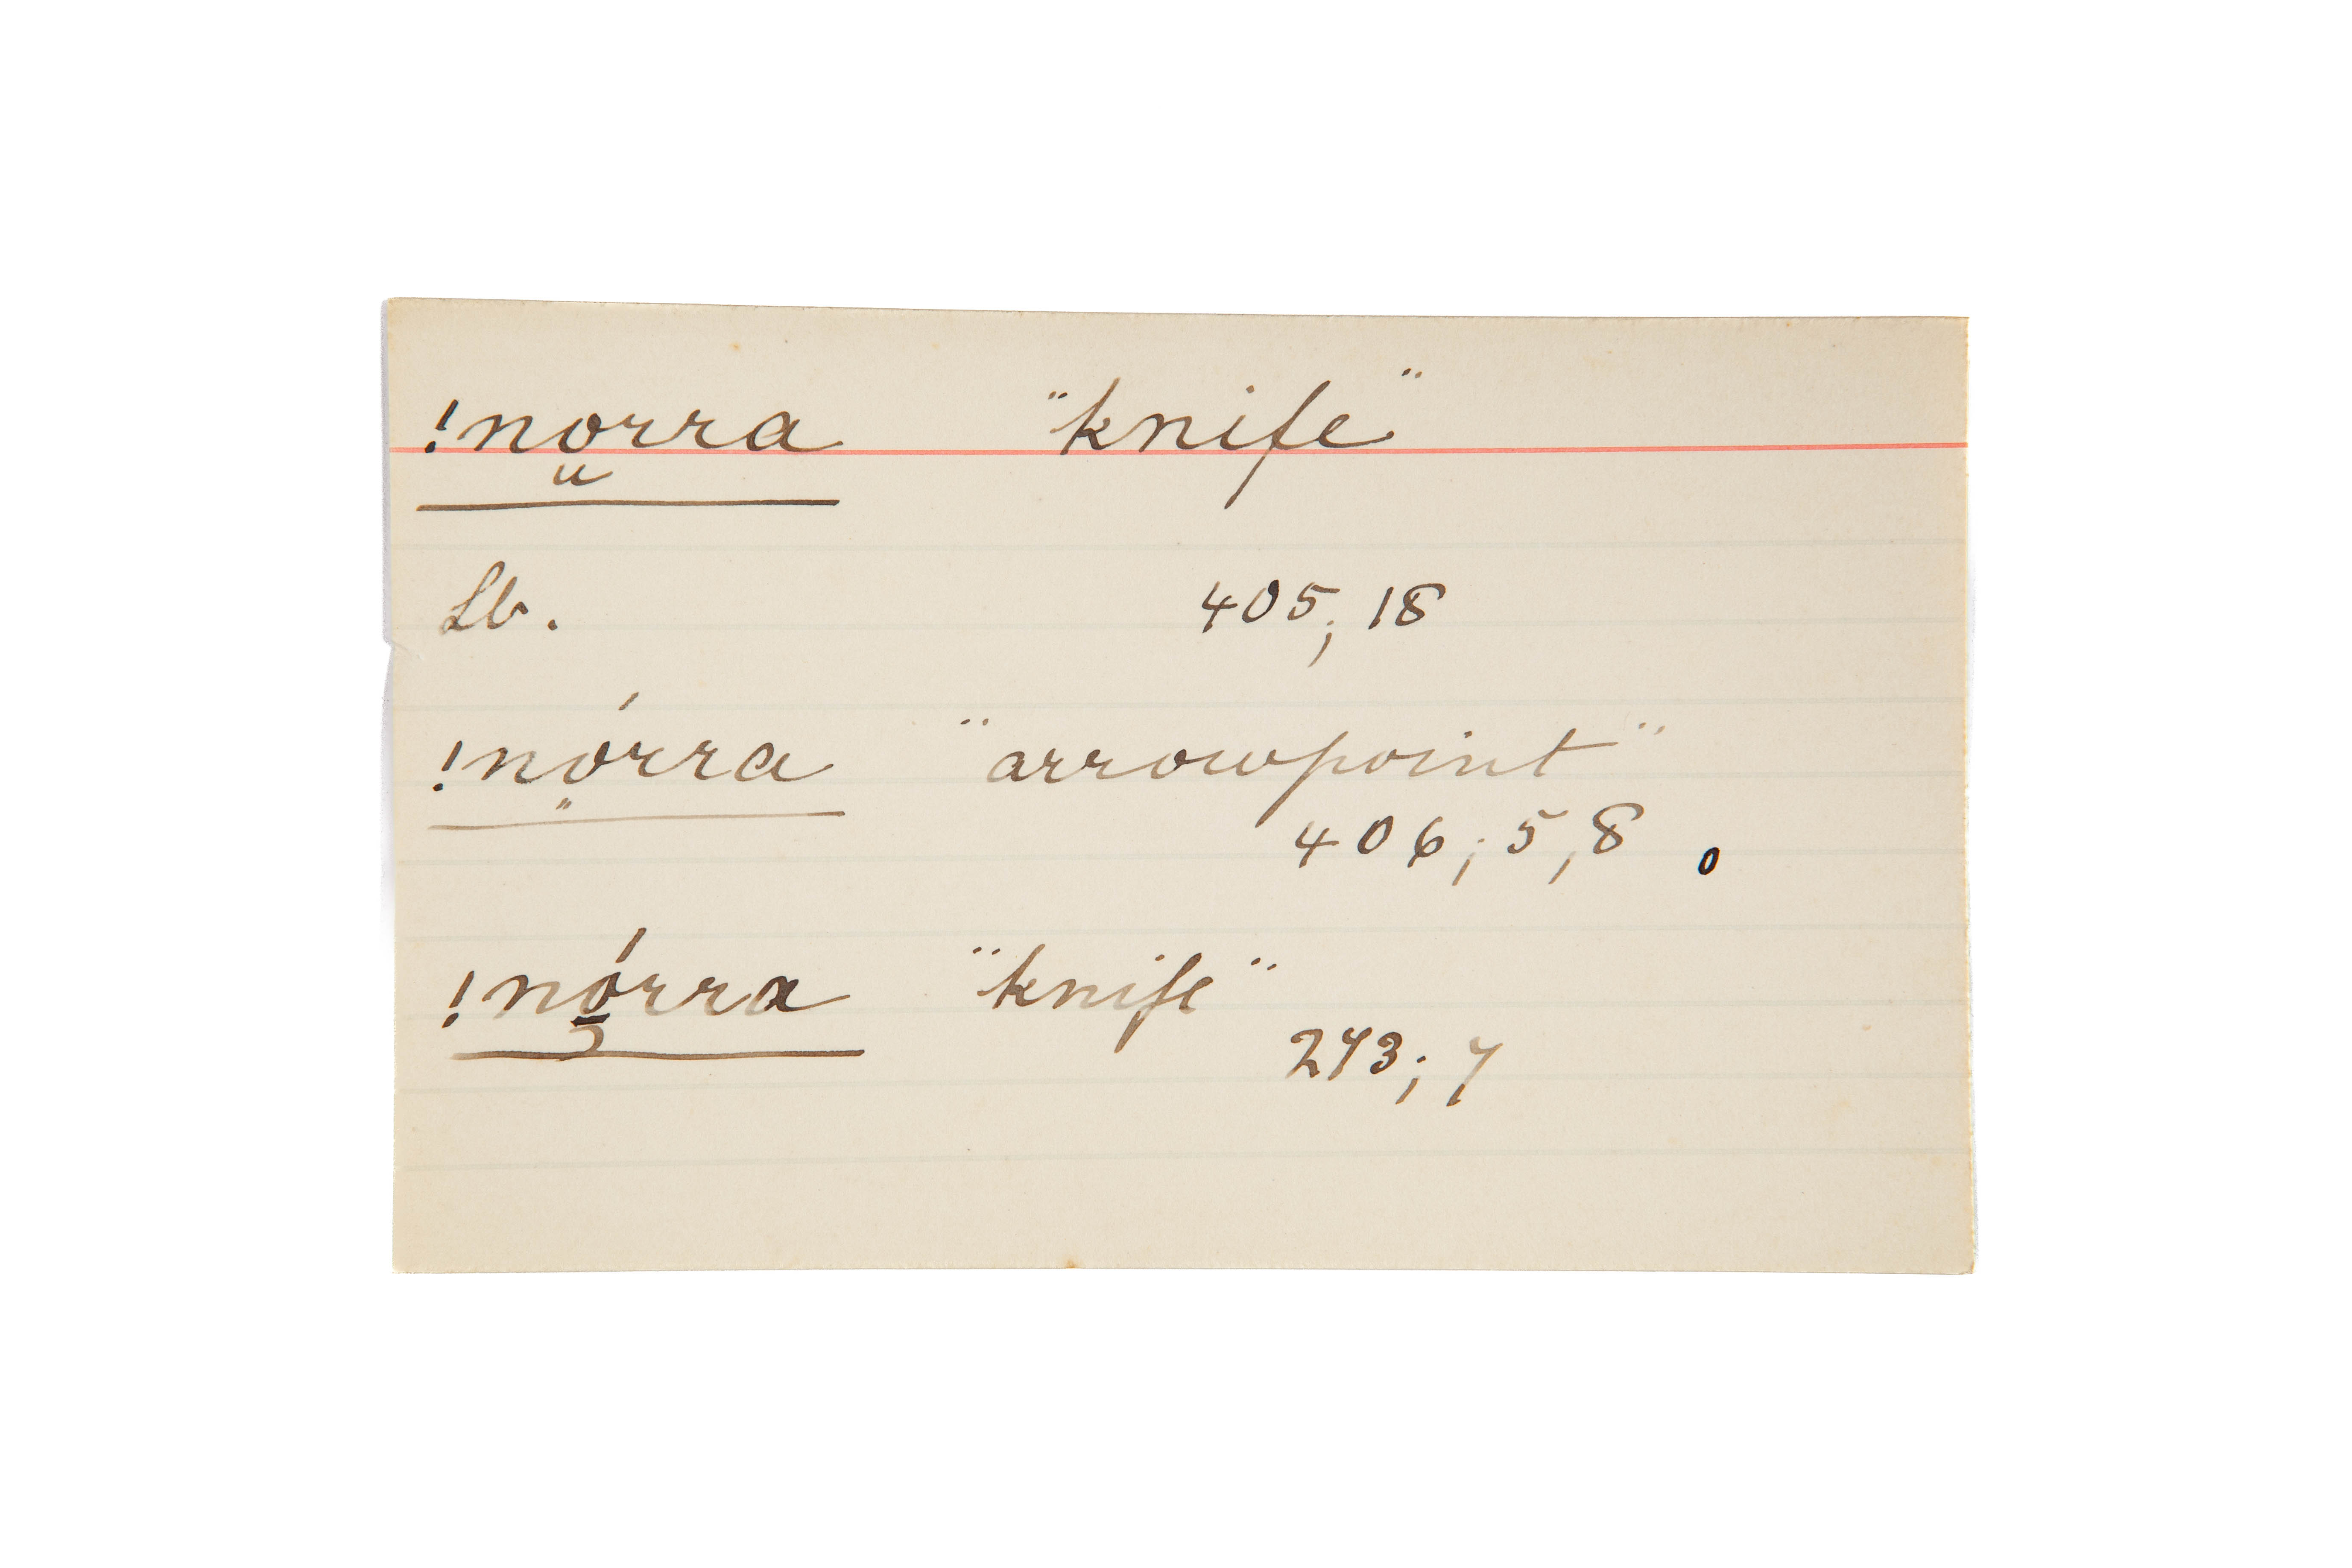 !no̤rra "knife"
Lb. 405; 18
!nó̤rra "arrowpoint"
406; 5, 8 o
!nó̱rra "knife"
273; 7